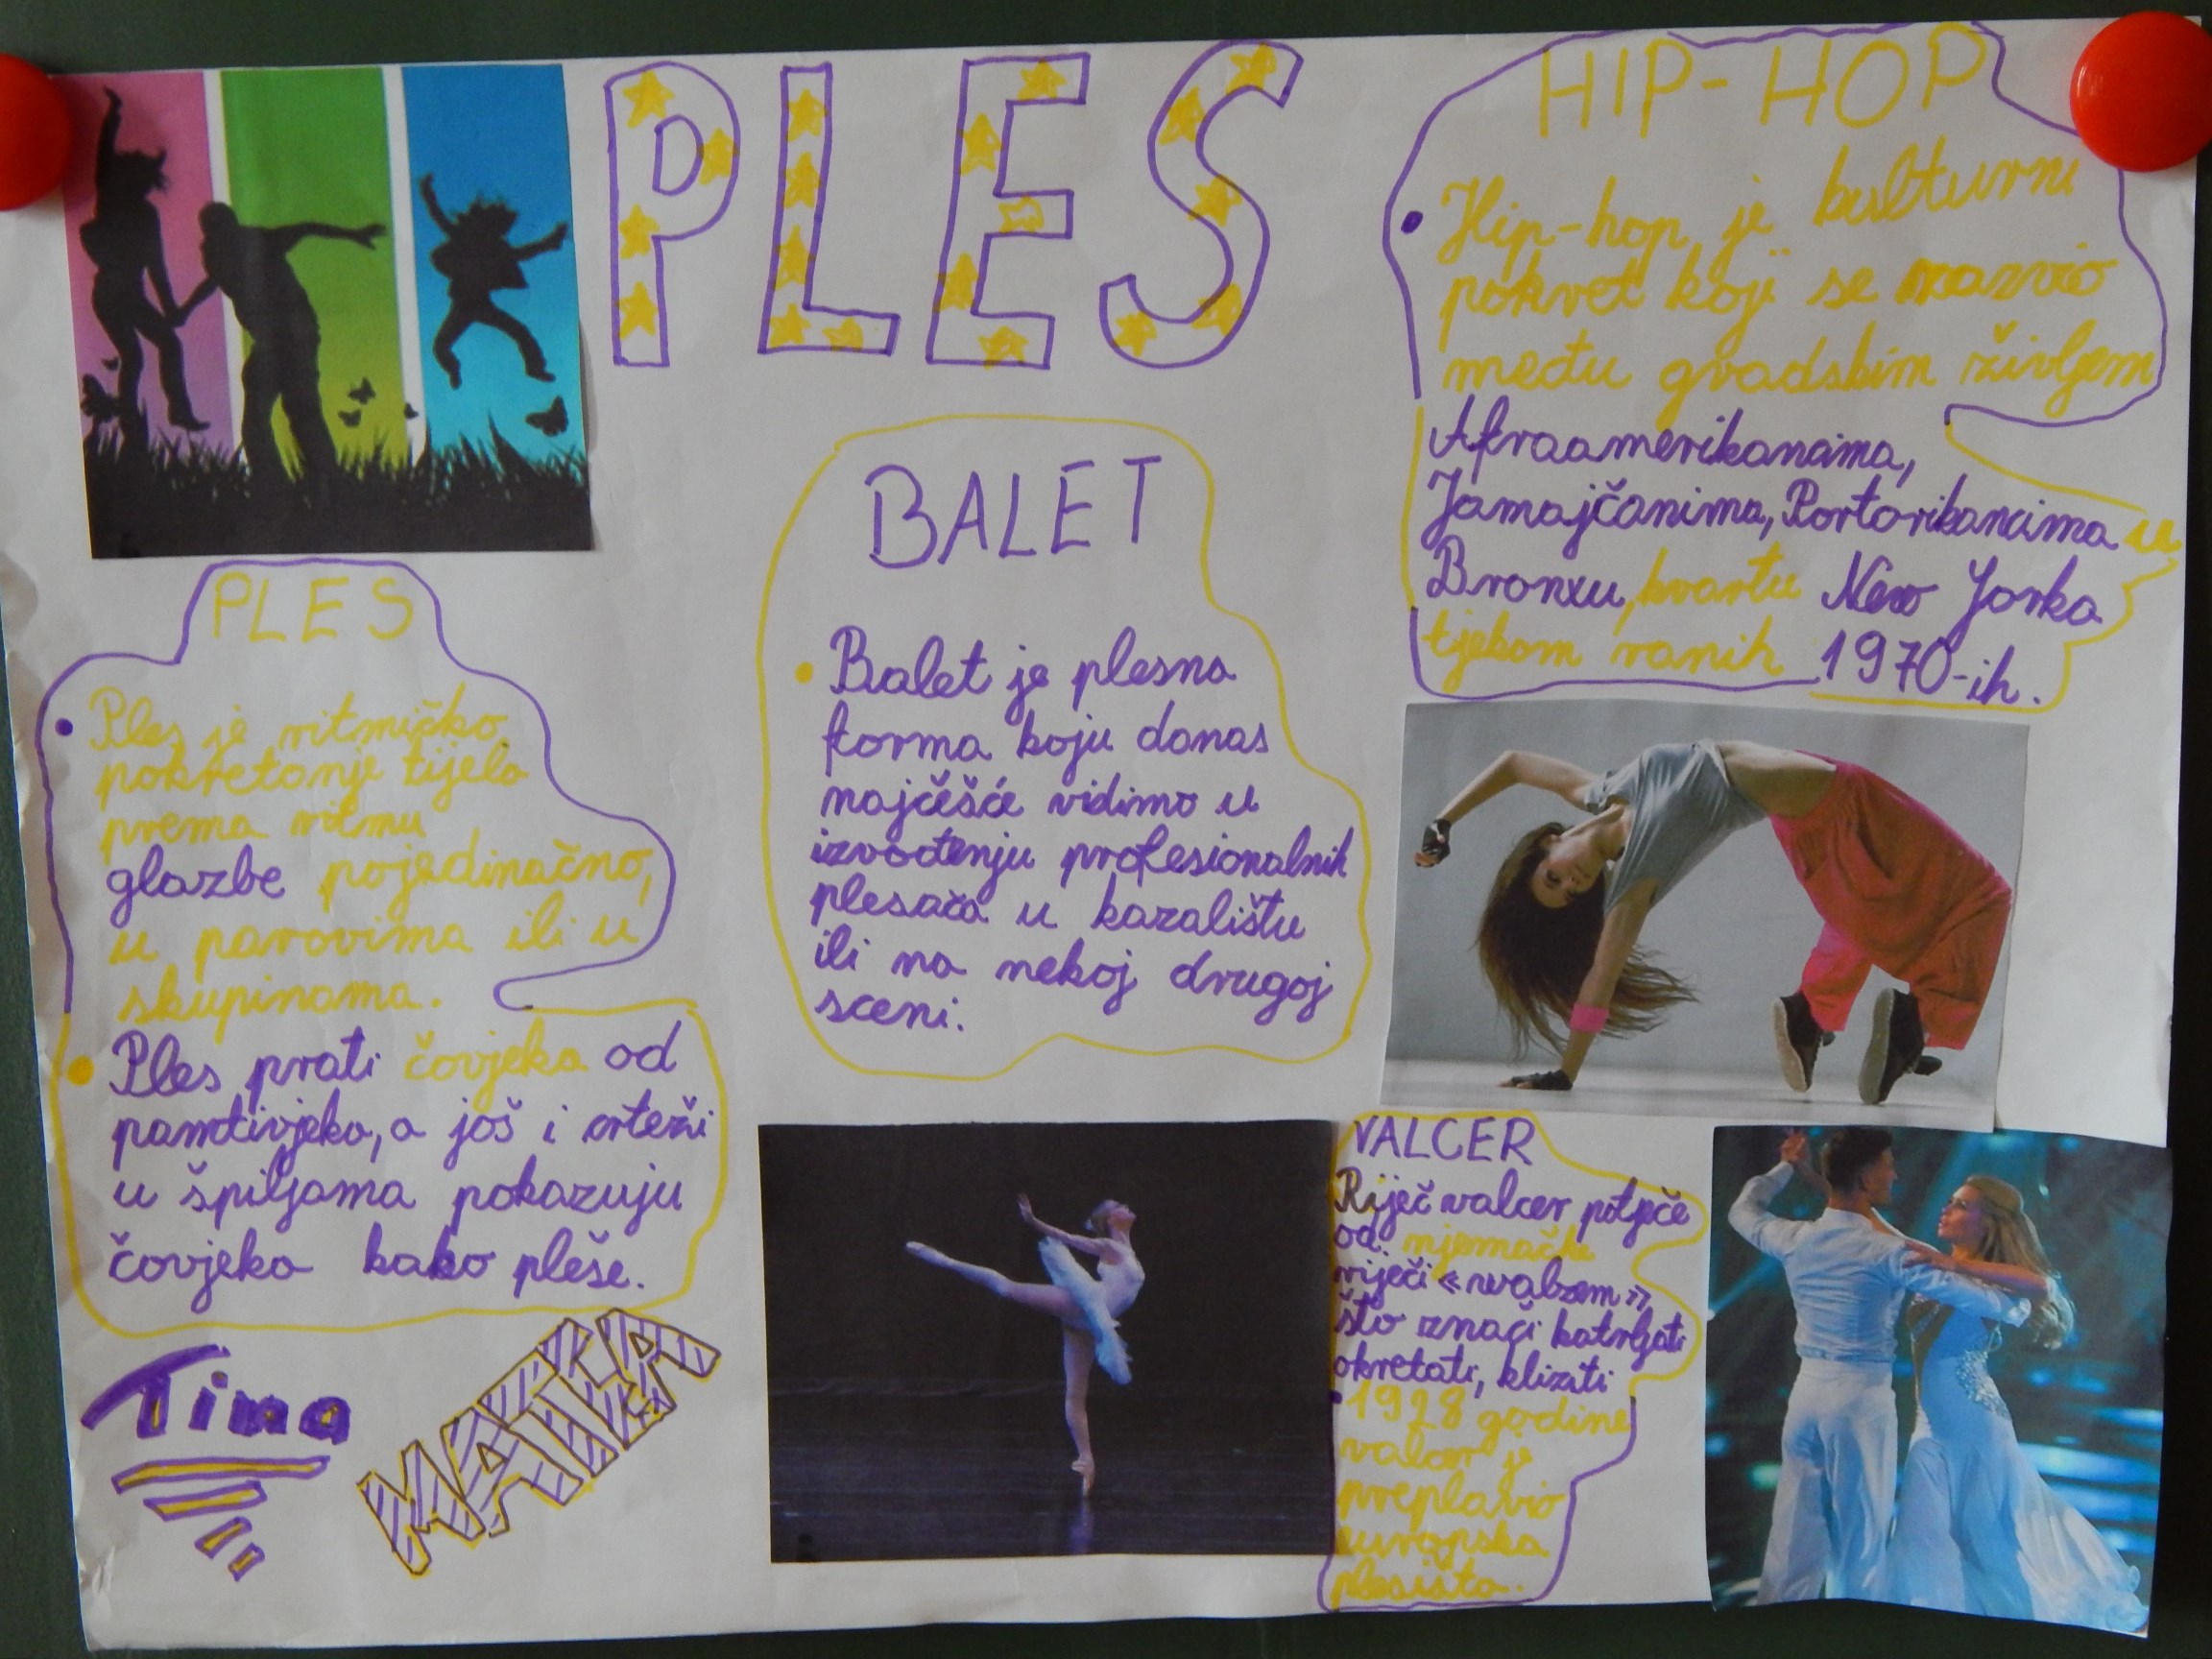 PLES
PLES
Ples je ritmičko
pokretanje tijela
prema ritmu
glazbe pojedinačno,
u parovima ili u
skupinama.
Ples prati čovjeka od
pamtivjeka, a još i crteži
u špiljama pokazuju
čovjeka kako pleše.
Tina
MATEA
BALET
Balet je plesna
forma koju danas
najčešće vidimo u
izvođenju profesionalnih
plesača u kazalištu
ili na nekoj drugoj
sceni.
HIP-HOP
Hip-hop je kulturni
pokret koji se razvio
među gradskim življem
Afroamerikanaima,
Jamajčanima, Portorikancima u
Bronxu, kvartu New Yorka
tjekom ranih 1970-ih.
VALCER
Riječ valcer potječe
od njemačke
riječi «walzem»
što znači kotrljati
okretati, kliziti
1928 godine
valcer je
preplavio
europska
plesišta.